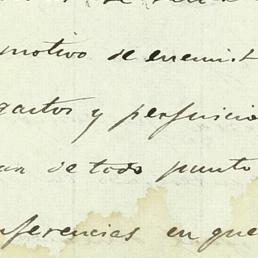 motivo de enemist
gastos y perjuicio
an de todo punto
nferencias en que